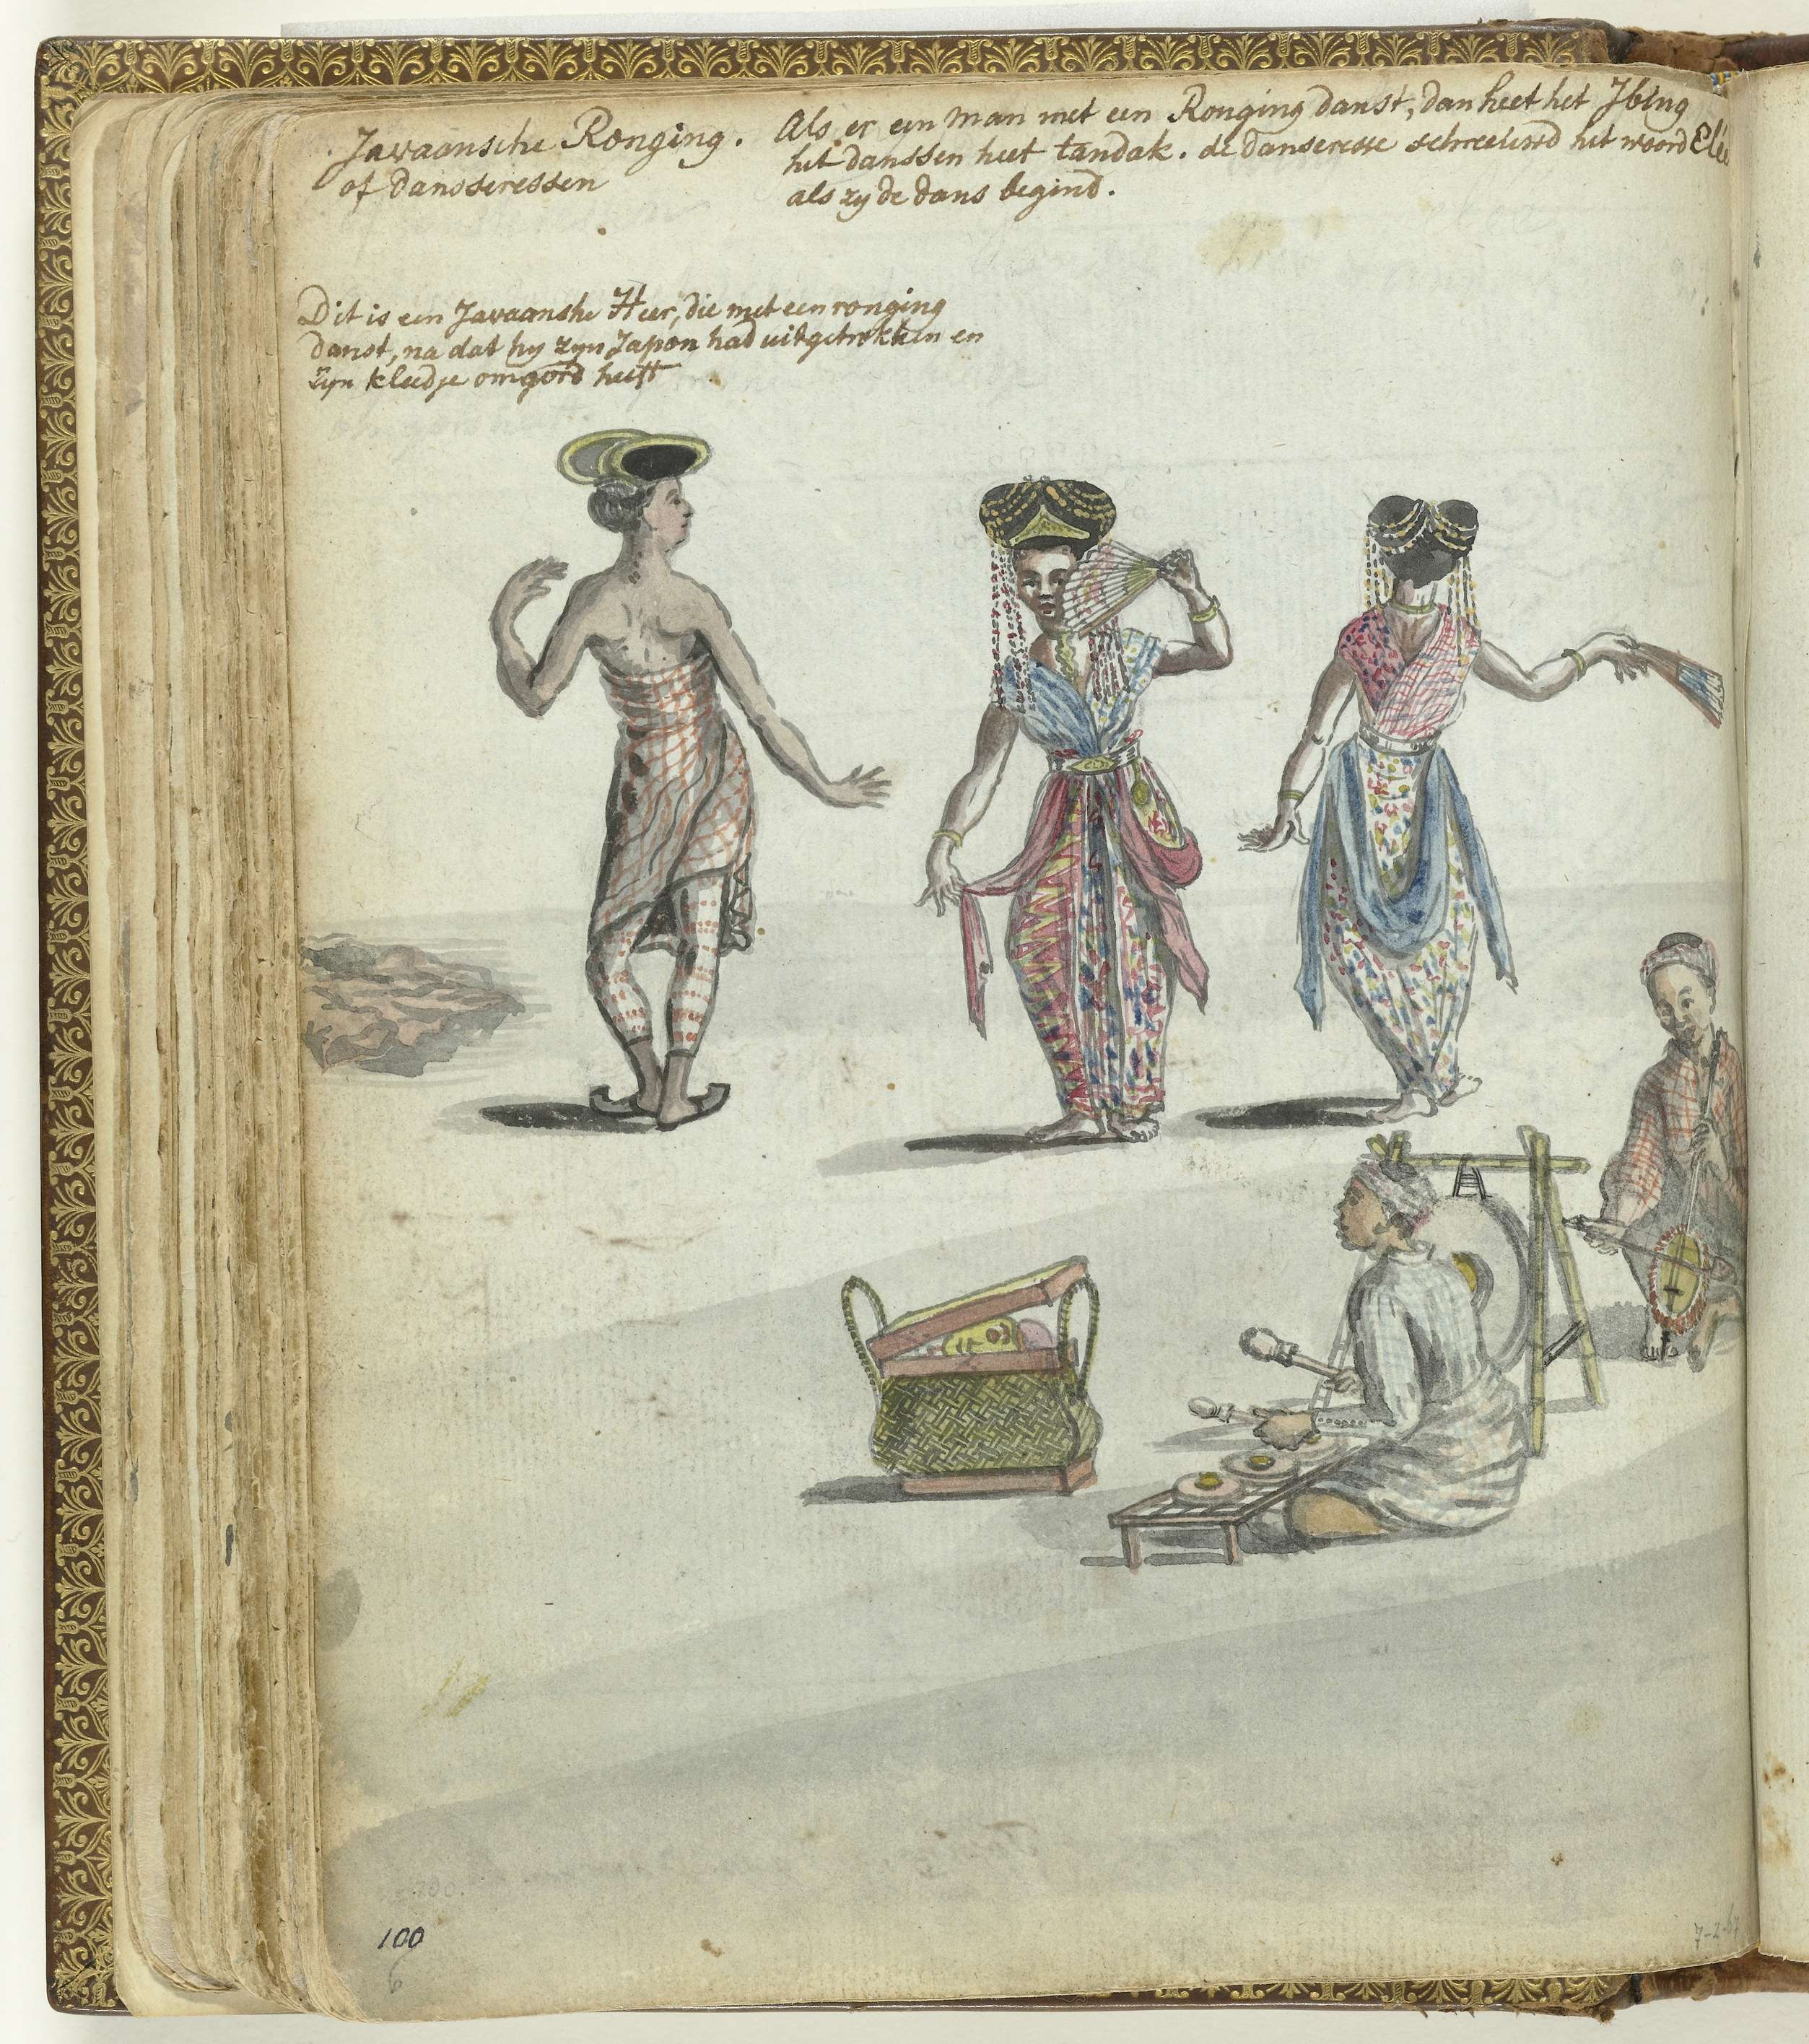 Javaansche Ronging.
of dansseressen
Als er een man met een Ronging danst, dan heet het Ibing
het danssen heet tandak. de danseresse schreeuwd het woord
als zy de dans begind.
Dit is een Javaanshe Heer, die met een ronging
danst, na dat hy zyn Japon had uitgetrokken en
zyn kleedje omgord heeft
100
6